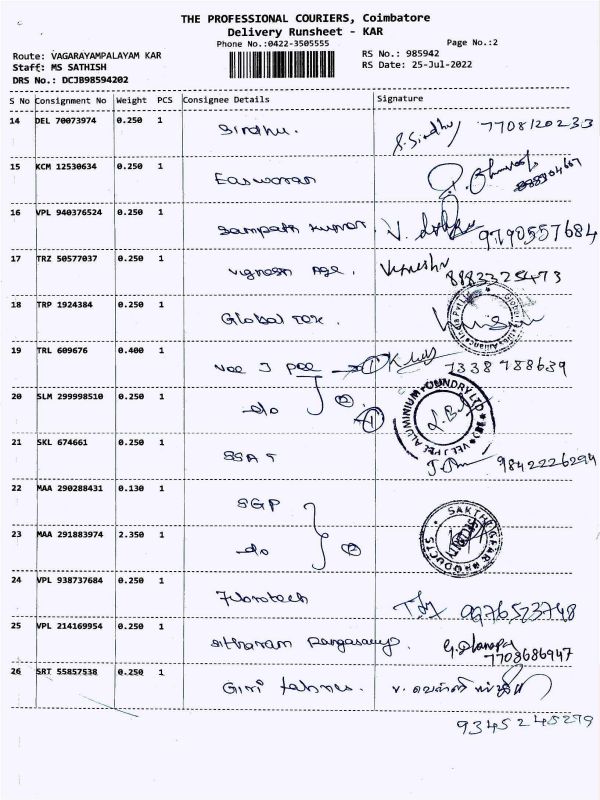 THE PROFESSIONAL COURIERS, Coimbatore
Delivery Runsheet - KAR
Phone No.:0422-3505555
Page No.:2
Route: VAGARAYAMPALAYAM KAR
RS No.: 985942
Staff: MS SATHISH
RS Date: 25-Jul-2022
DRS No.: DCJB98594202
S No Consignment No Weight PCS Consignee Details Signature
14 DEL 70073974 0.250 1 Sindhu. S. Sindhu 7708120233
15 KCM 12530634 0.250 1 Easwaran
16 VPL 940376524 0.250 1 Sampath Kumar. V. 9790557684
17 TRZ 50577037 0.250 1 Vignesh Age. Vignesh 8883325473
18 TRP 1924384 0.250 1 Global Tex.
19 TRL 609676 0.400 1 Vee J Pee 7338788639
20 SLM 299998510 0.250 1 do 2
ALUMINIUM FOUNDRY LTD
VEE J PEE
21 SKL 674661 0.250 1 SSAT 9842226294
22 MAA 290288431 0.130 1 SGP
23 MAA 291883974 2.350 1 do 2
24 VPL 938737684 0.250 1 Fibrotech 9976573748
25 VPL 214169954 0.250 1 Sitharam Rangasamy. 7708686947
26 SRT 55857538 0.250 1 Giri fabrics.
9345245299